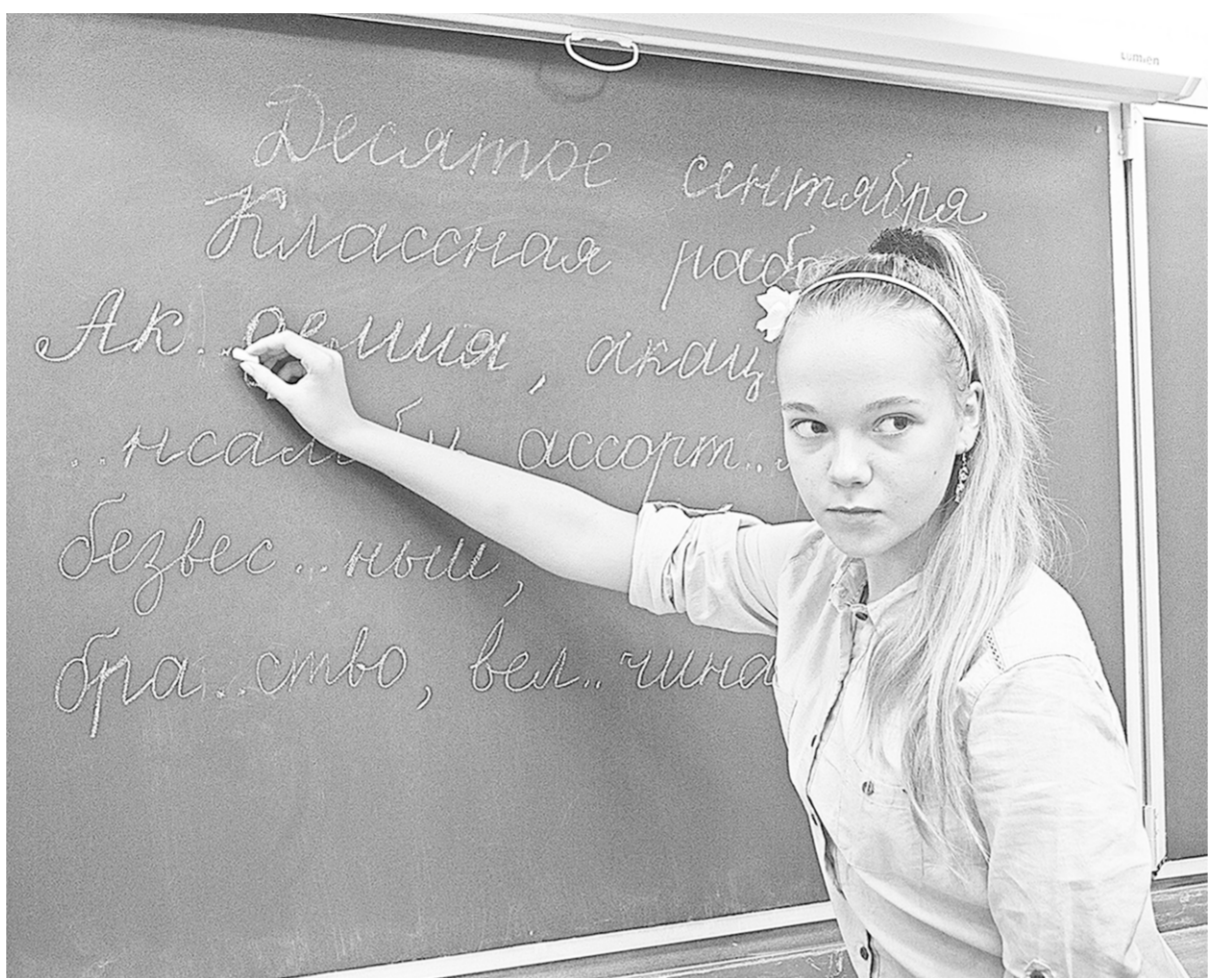 Lumien
Десятое сентября
Классная
Ак..демия,
ассорт..
безвес..ный,
бра..ство, вел..чина